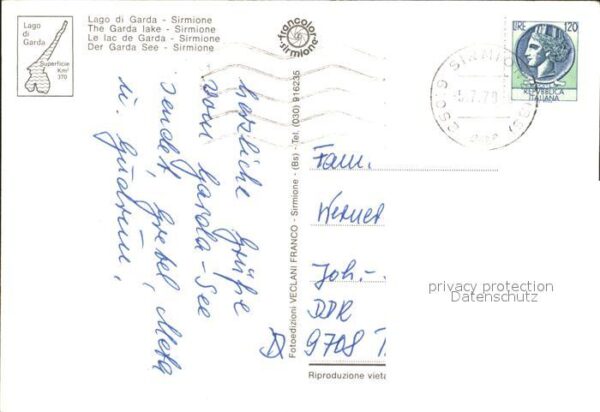 Lago di Garda - Sirmione
The Garda lake - Sirmione
Le lac de Garda - Sirmione
Der Garda See - Sirmione
Lago
di
Garda
Superficie
Km²
370
francolor
sirmione
LIRE 120
REPVBBLICA
ITALIANA
25019 SIRMIONE
5.7.78
herzliche Grüße
vom Garda-See
sendet, Gretel, Meta
u. Gudrun.
Fotoedizioni VECLANI FRANCO - Sirmione - (Bs) - Tel. (030) 916235
Fam.
Werner
Joh.-
DDR
9708 T
D
privacy protection
Datenschutz
Riproduzione vieta